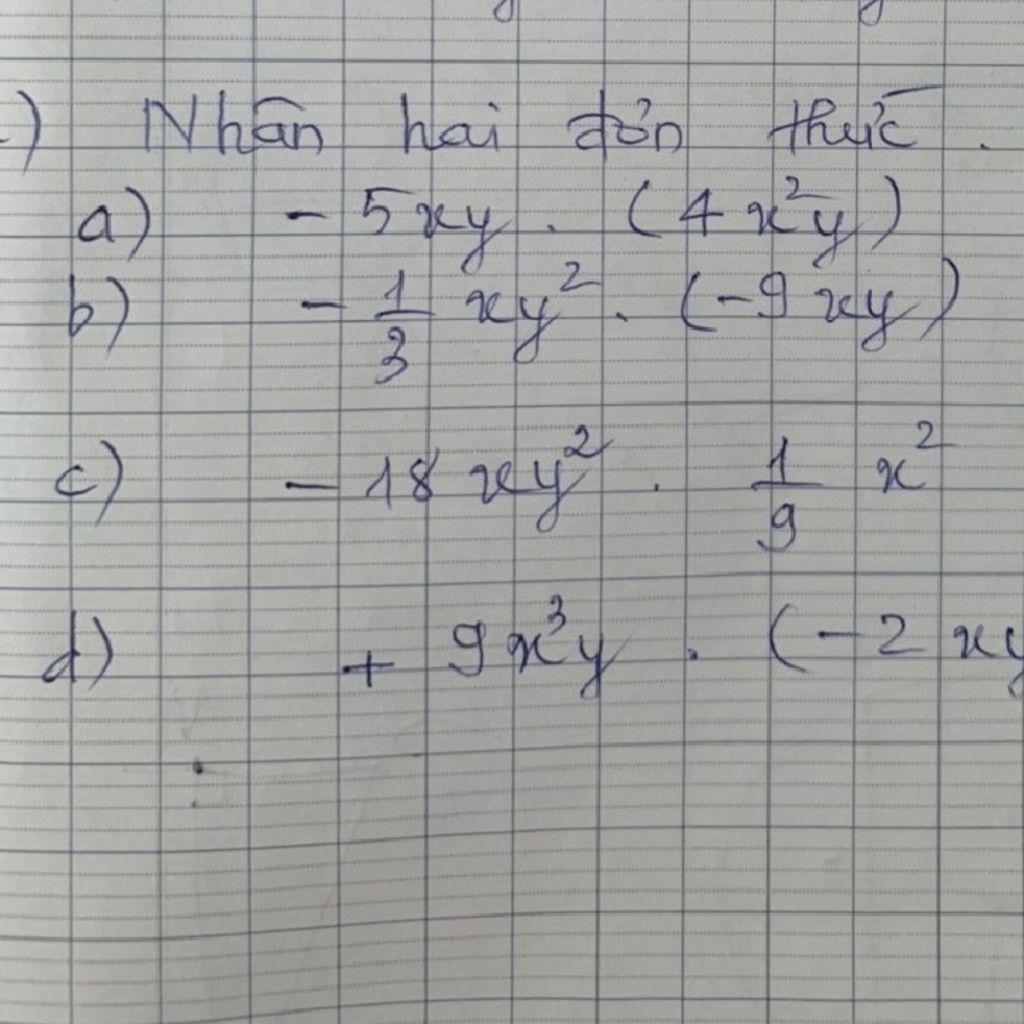 ) Nhân hai đơn thức.
a) - 5xy . (4x²y)
b) - 1/3 xy² . (-9xy)
c) - 18xy² . 1/9 x²
d) + 9x³y . (-2xy